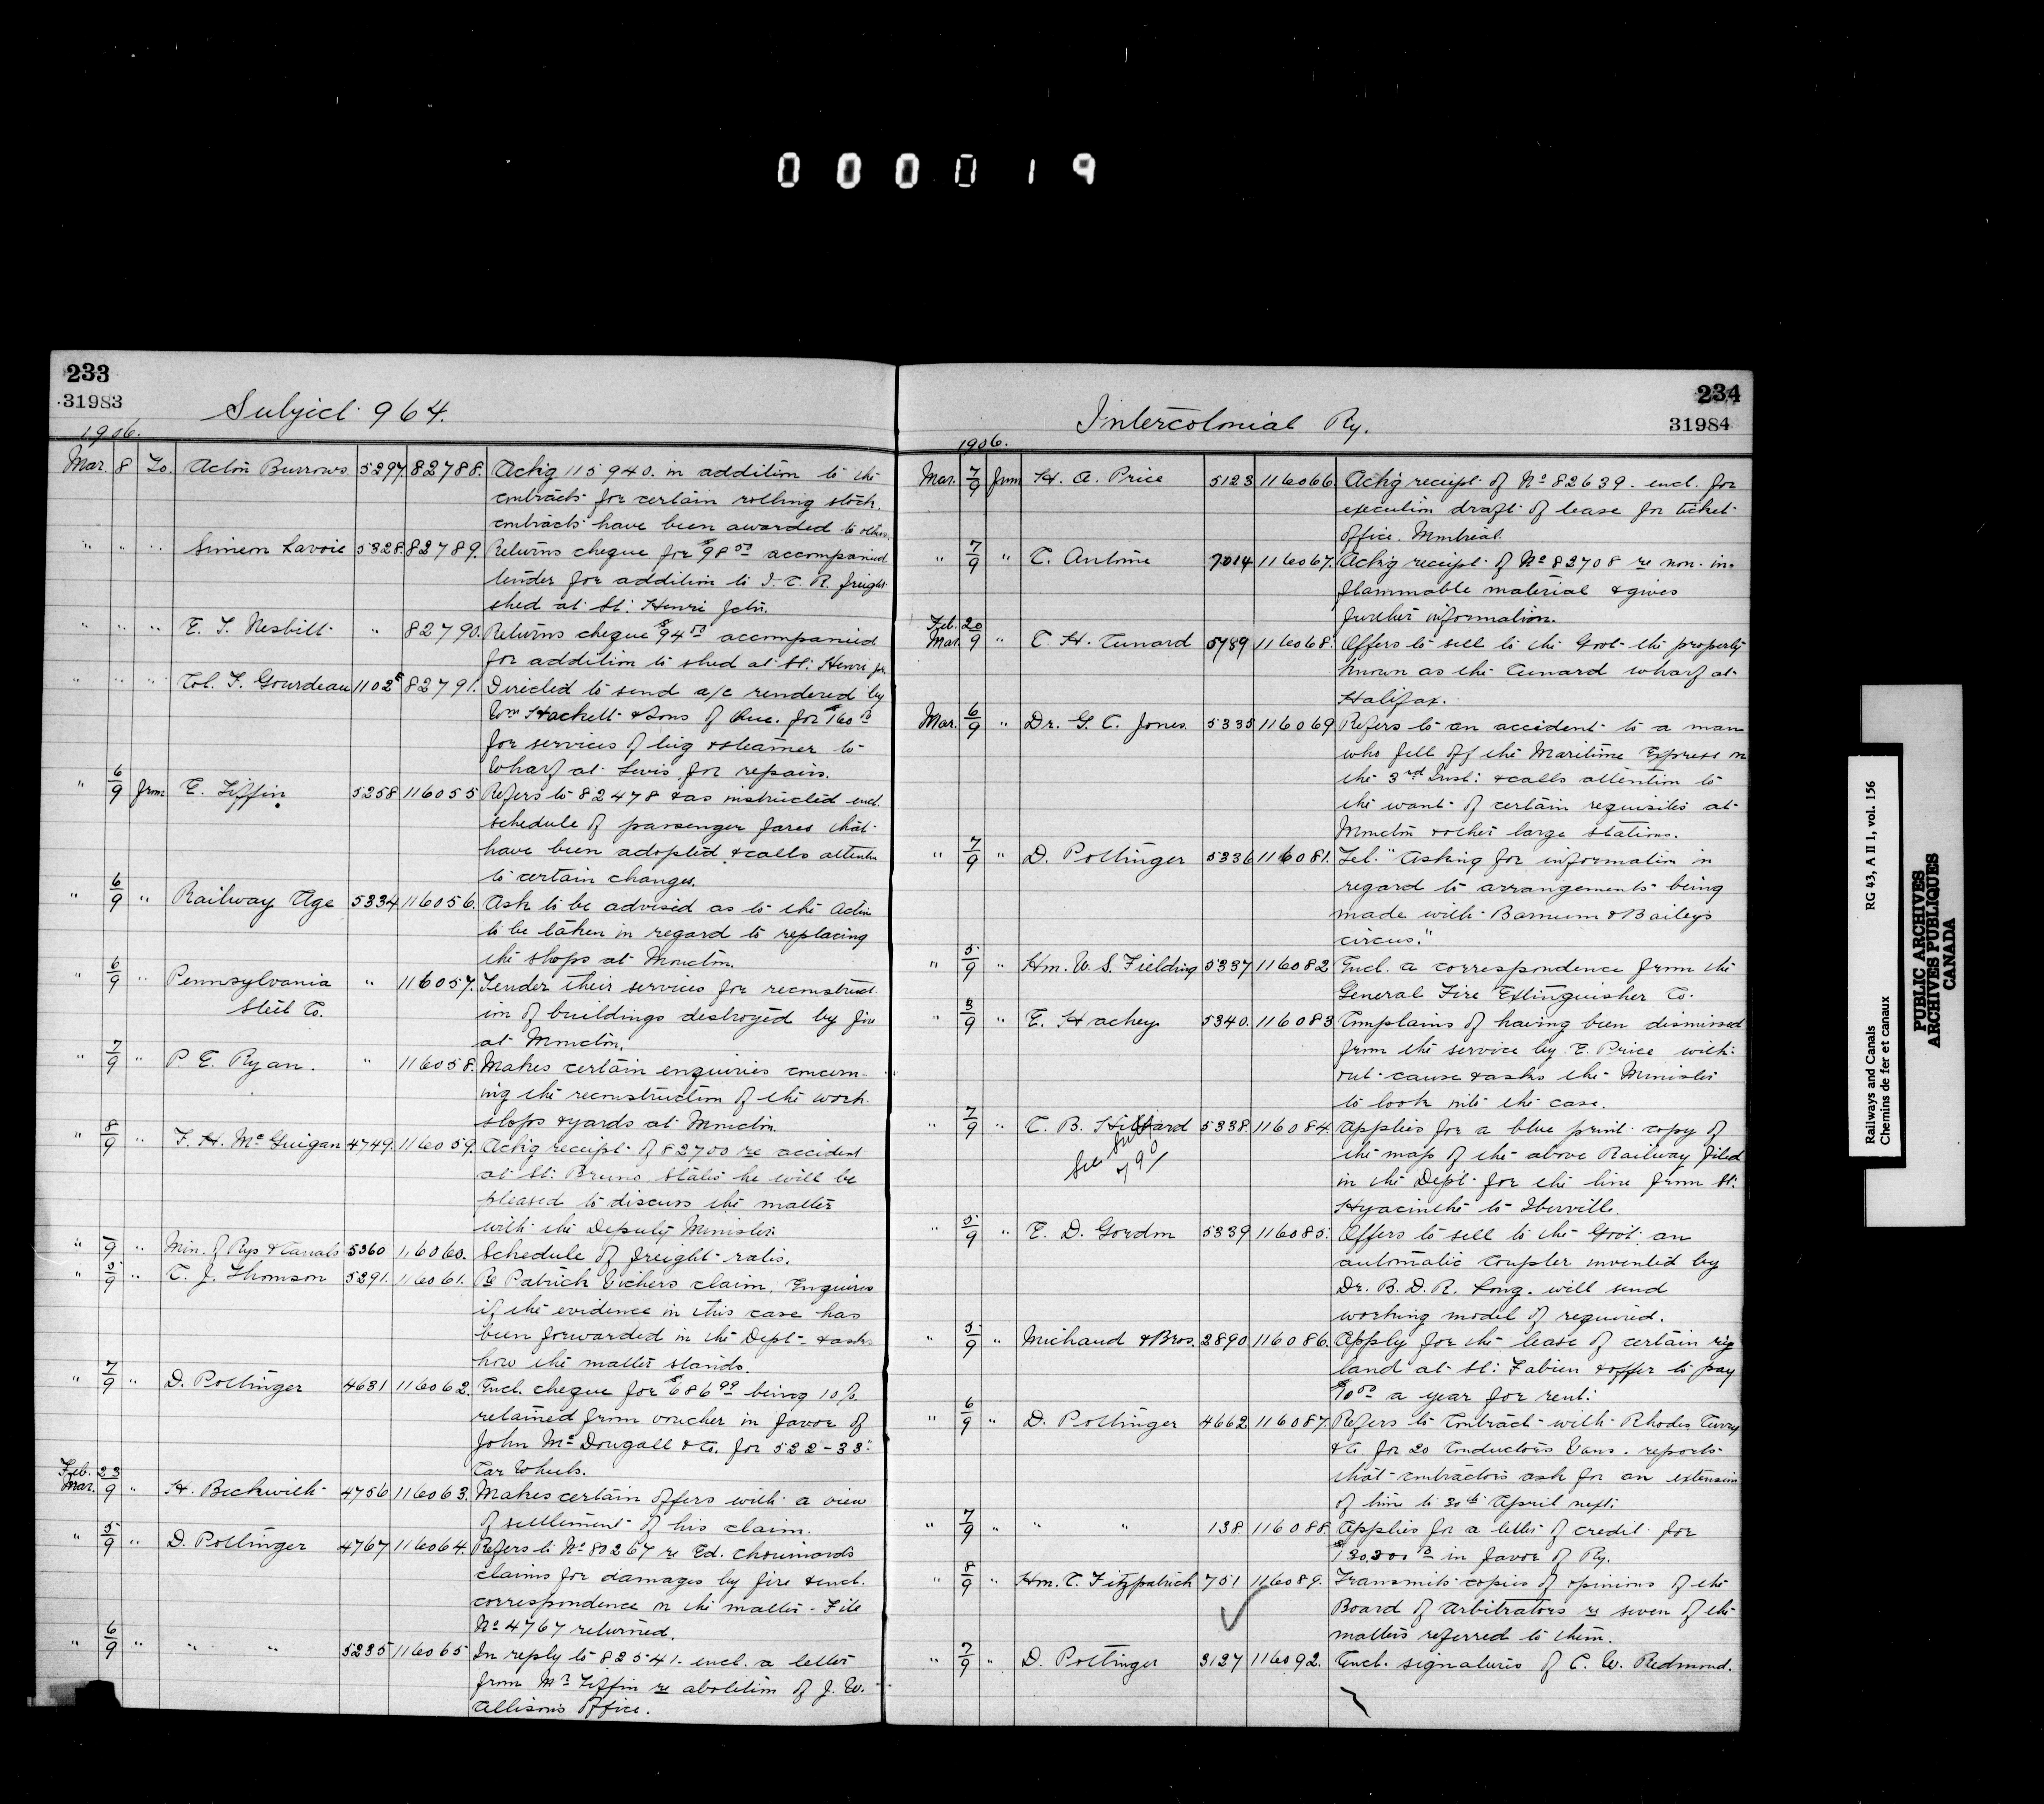 000019
233
31983
Subject 964.
1906.
Mar. 8 To. Acton Burrows 5297. 82788. Ackg 115940. in addition to the
contracts for certain rolling stock.
contracts have been awarded to others.
" " " Simeon Lavoie 5328. 82789. Returns cheque for $98 accompanied
tender for addition to I. C. R. freight
shed at St. Henri Jctn.
" " " E. T. Nesbitt " 82790. Returns cheque $94 accompanied
for addition to shed at St. Henri
" " " Col. F. Gourdeau 1102 82791. Directed to send a/c rendered by
Wm Hackett & Sons of Que. for $160
for services of tug & steamer to
Wharf at Levis for repairs.
" 6/9 from E. Tiffin 5258 116055 Refers to 82478 & as instructed encl.
schedule of passenger fares that
have been adopted & calls attention
to certain changes.
" 6/9 " Railway Age 5334 116056. Ask to be advised as to the action
to be taken in regard to replacing
the shops at Moncton.
" 6/9 " Pennsylvania " 116057. Tender their services for reconstruct-
Steel Co. ion of buildings destroyed by fire
at Moncton.
" 7/9 " P. E. Ryan. " 116058. Makes certain enquiries concern-
ing the reconstruction of the work
shops & yards at Moncton
" 8/9 " F. H. McGuigan 4749. 116059. Ackg receipt of 82700 re accident
at St. Bruno states he will be
pleased to discuss the matter
with the Deputy Minister
" -/9 " Min. of Rys & Canals 5360 116060. Schedule of freight rates.
" 5/9 " C. J. Thomson 5291. 116061. Re Patrick Vickers claim. Enquires
if the evidence in this case has
been forwarded in the Dept- & asks
how the matter stands.
" 7/9 " D. Pottinger 4631 116062. Encl. cheque for $686 99 being 10%
retained from voucher in favor of
John McDougall & Co. for 522-33"
Car Wheels.
Feb. 23
Mar. 9 " H. Beckwith 4756 116063. Makes certain offers with a view
of settlement of his claim.
" 5/9 " D. Pottinger 4767 116064. Refers to No 80267 re Ed. Chouinards
claims for damages by fire & encl.
correspondence on the matter - File
No 4767 returned.
" 6/9 " " " 5235 116065 In reply to 82541. encl. a letter
from Mr Tiffin re abolition of J. W.
Allisons Office.
234
31984
Intercolonial Ry.
1906.
Mar. 7/9 from H. A. Price 5123 116066 Ackg receipt of No 82639. encl. for
execution draft of lease for ticket
office Montreal.
" 7/9 " C. Antoine 7014 116067. Ackg receipt of No 82708 re non-in-
flammable material & gives
further information.
Feb. 20
Mar. 9 " C. H. Cunard 5789 116068. Offers to sell to the Govt the property
known as the Cunard wharf at
Halifax.
Mar. 6/9 " Dr. G. C. Jones. 5335 116069 Refers to an accident to a man
who fell off the Maritime Express on
the 3rd Inst: & calls attention to
the want of certain requisites at
Moncton & other large stations.
" 7/9 " D. Pottinger 5336 116081. Tel. "Asking for information in
regard to arrangements being
made with Barnum & Baileys
circus."
" 5/9 " Hon. W. S. Fielding 5337 116082 Encl. a correspondence from the
General Fire Extinguisher Co.
" 3/9 " E. Hachey 5340. 116083 Complains of having been dismissed
from the service by E. Price with-
out cause & asks the Minister
to look into the case.
" 7/9 " C. B. Hibbard 5338. 116084. Applies for a blue print copy of
See Sub
790
the map of the above Railway filed
in the Dept for the line from St.
Hyacinthe to Iberville.
" 5/9 " E. D. Gordon 5339 116085. Offers to sell to the Govt: an
automatic coupler invented by
Dr. B. D. R. Long. will send
working model if required.
" 5/9 " Michaud & Bros. 2890. 116086. Apply for the lease of certain ry
land at St: Fabien & offer to pay
$10 a year for rent.
" 6/9 " D. Pottinger 4662 116087. Refers to Contract with Rhodes Curry
& Co for 20 Conductors Vans. reports
that contractors ask for an extension
of time to 30th April next.
" 7/9 " " " 138. 116088. Applies for a letter of credit for
in favor of Ry.
" 8/9 " Hon. C. Fitzpatrick 751 116089. Transmits copies of opinions of the
Board of Arbitrators re seven of the
matters referred to them.
" 7/9 " D. Pottinger 3127 116092. Encl. signatures of C. W. Redmond.
Railways and Canals RG 43, A II 1, vol. 156
Chemins de fer et canaux
PUBLIC ARCHIVES
ARCHIVES PUBLIQUES
CANADA